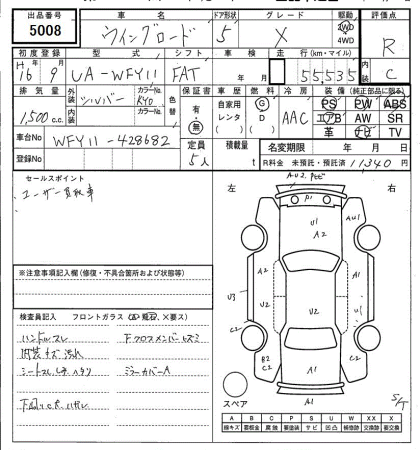 出品番号 車名 ドア形状 グレード 駆動 評価点
5008 ウイングロード 5 X 2WD 4WD R
初度登録 型式 シフト 車検 走行(km・マイル) 内装
H16年9月 UA-WFY11 FAT 年 月 55,535 C
排気量 外装色 シルバー カラーNo. KY0 色替 保証書 車歴 燃料 冷房 装備(純正部品に限る)
1,500 c.c. 内装色 カラーNo. 有・無 自家用 レンタ G D AAC PS PW ABS
エアB AW SR
革 ナビ TV
車台No WFY11-428682 定員 積載量 名変期限 年 月 日
登録No 5人 t R料金 未預託・預託済 11340円
セールスポイント
ユーザー買取車
左 右
※注意事項記入欄(修復・不具合箇所および状態等)
検査員記入 フロントガラス(A・飛石・×要ス)
ハンドルスレ
内装キズ汚れ
シートスレ コゲ ヘタリ
下回りサビ ハガレ
下クロスメンバーヒズミ
ミラーカバーA
AU2
P1
U1
AU1
A2
A2
A2
U3
V2
U2
C2
C2
B2
C2
A1
A1
スペア
S/T
A B C P S U W X XX
線キズ 要板金 腐蝕 要塗装 サビ 凹凸 補修跡 要交換 交換済